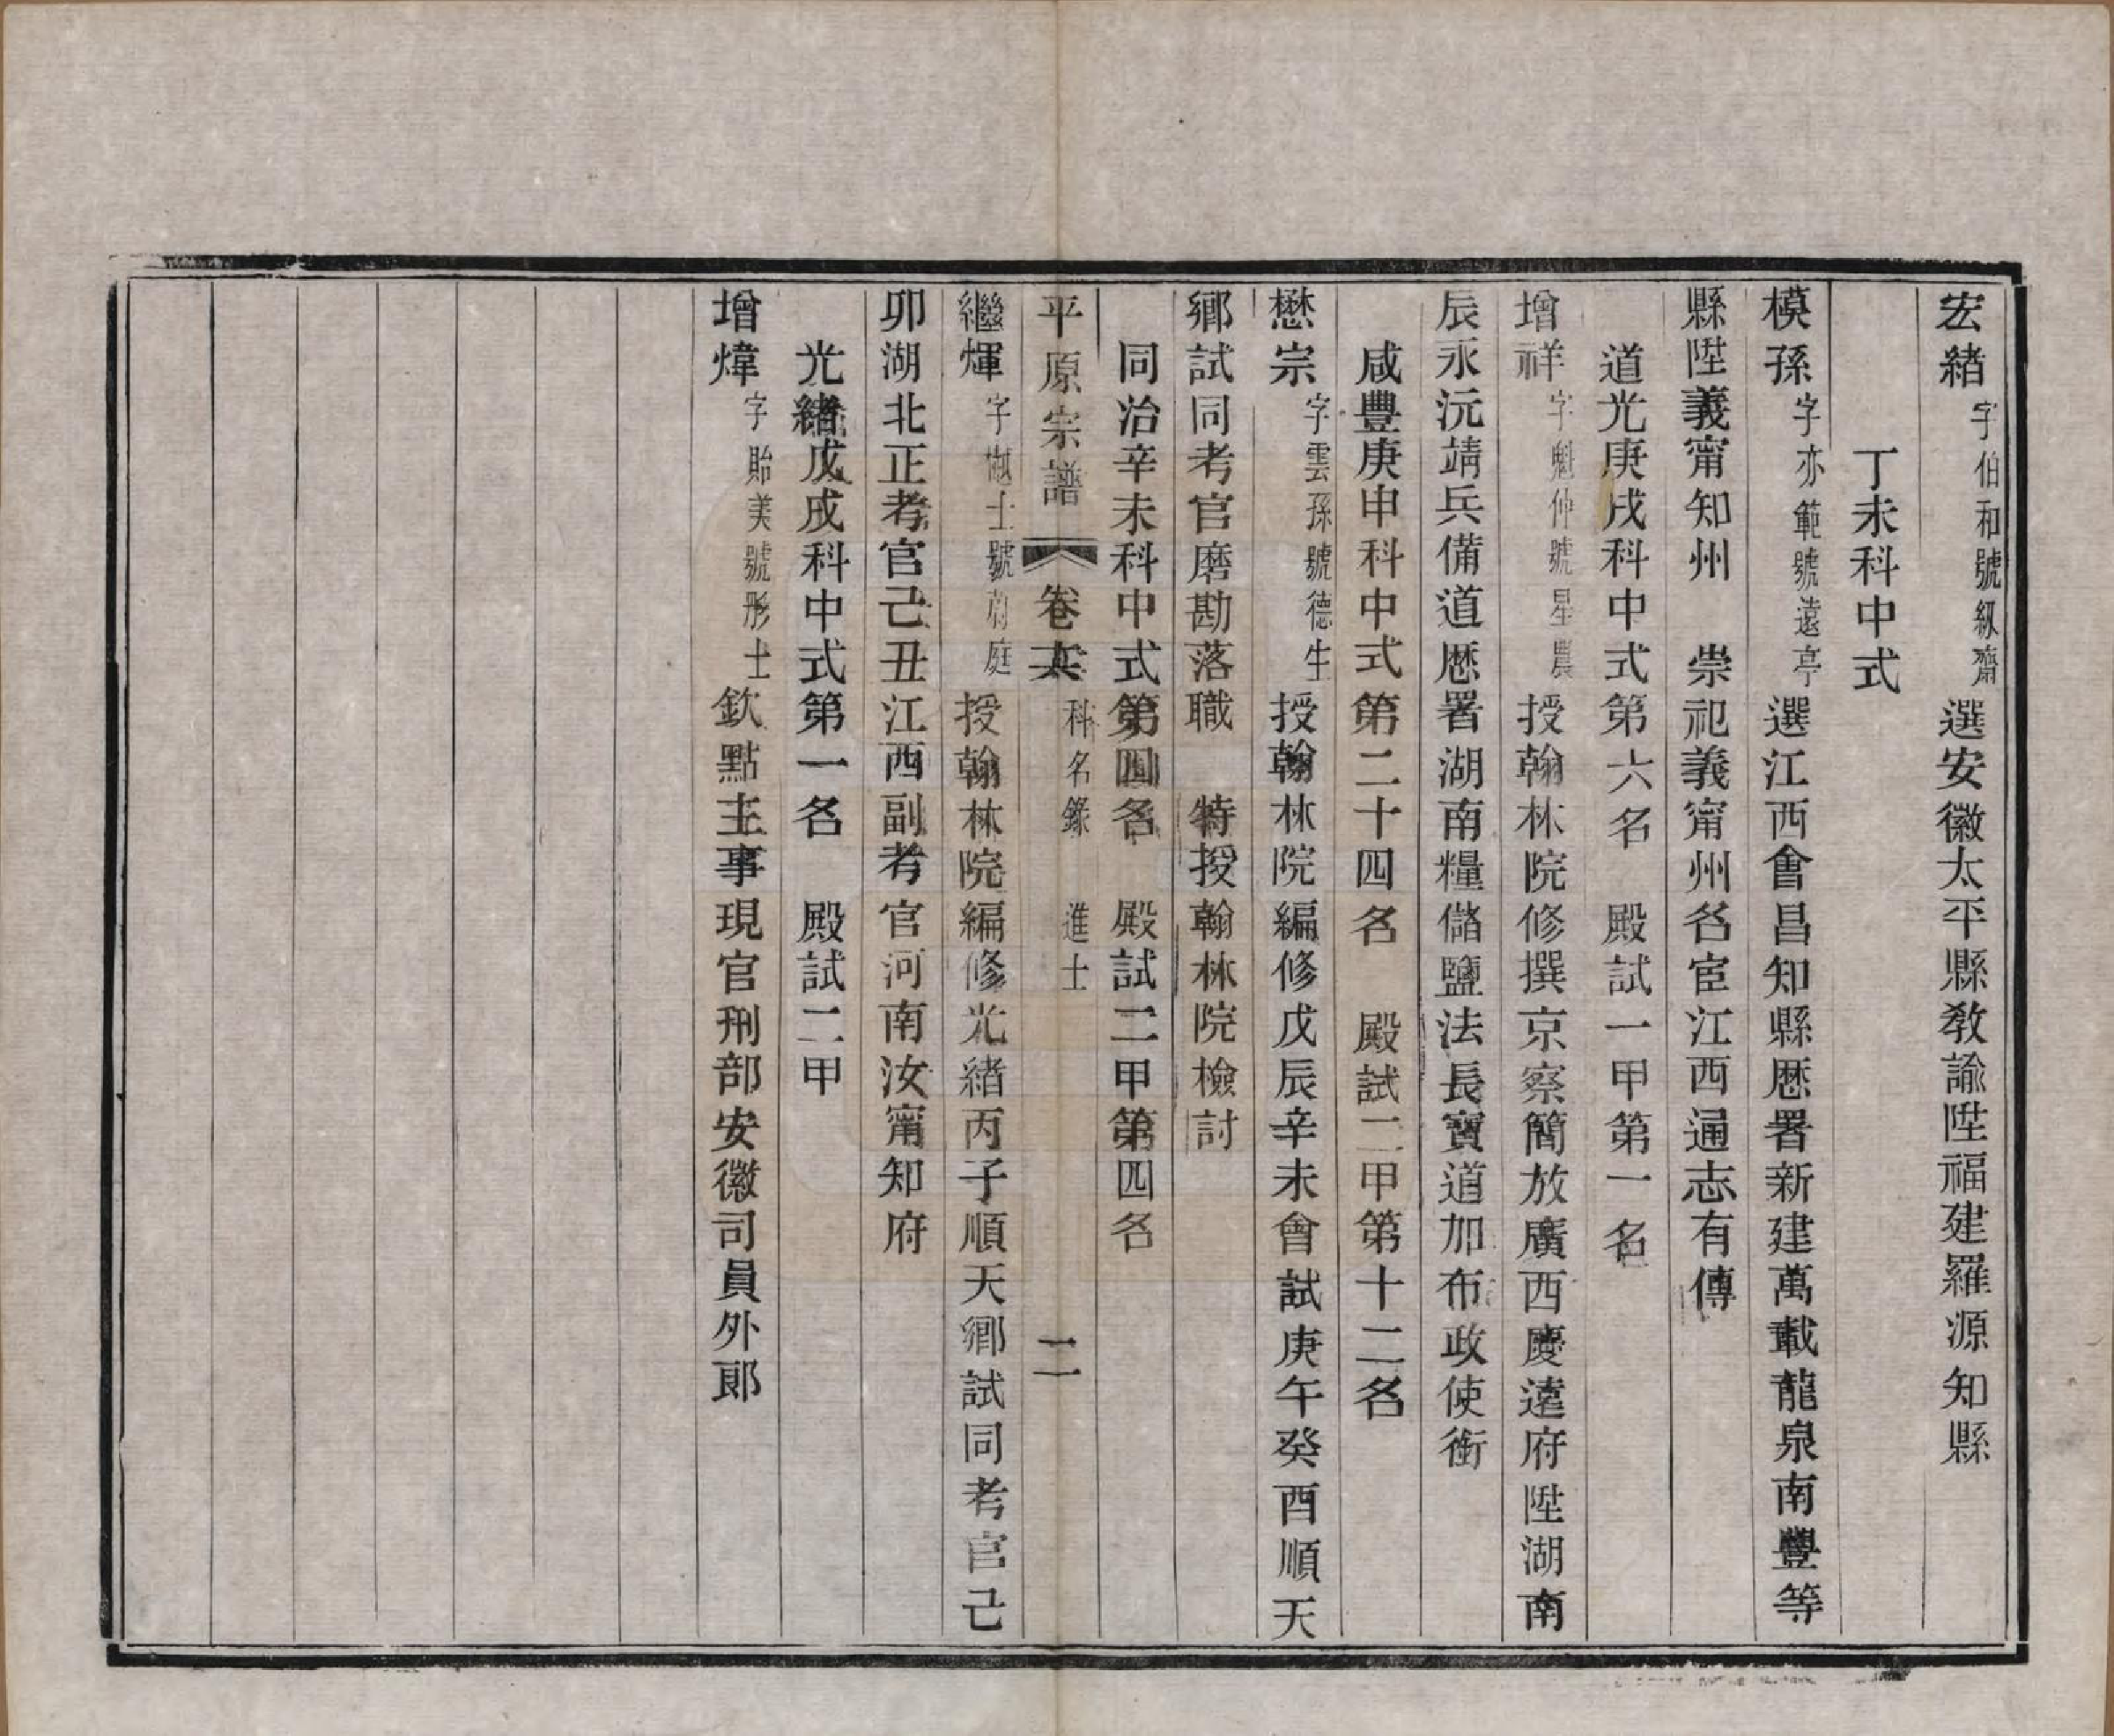 宏緖字伯和號級齋選安徽太平縣敎諭陞福建羅源知縣
丁未科中式
模孫字亦範號遠亭選江西會昌知縣歷署新建萬載龍泉南豐等
縣陞義甯知州　崇祀義甯州名宦江西通志有傳
道光庚戌科中式第六名　殿試一甲第一名
增祥字魁仲號星農授翰林院修撰京察簡放廣西慶遠府陞湖南
辰永沅靖兵備道歷署湖南糧儲鹽法長寶道加布政使銜
咸豐庚申科中式第二十四名　殿試二甲第十二名
懋宗字雲孫號德生授翰林院編修戊辰辛未會試庚午癸酉順天
鄉試同考官磨勘落職　特授翰林院檢討
同治辛未科中式第四名　殿試二甲第四名
平原宗譜　卷　科名錄　進士　二
繼煇字士號蔚庭授翰林院編修光緖丙子順天鄉試同考官己
卯湖北正考官己丑江西副考官河南汝甯知府
光緖戊戌科中式第一名　殿試二甲
增煒字貽美號彤士欽點主事現官刑部安徽司員外郞